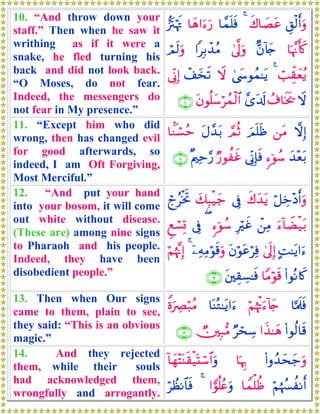 10. “And throw down your
staff.” Then when he saw it
writhing as if it were a
snake, he fled turning his
back and did not look back.
“O Moses, do not fear.
Indeed, the messengers do
not fear in My presence.”
وَأَلْقِ عَصَاكَ ۚ فَلَمَّا رَءَاهَا تَهْتَزُّ
كَأَنَّهَا جَآنٌّ وَلَّىٰ مُدْبِرًا وَلَمْ
يُعَقِّبْ ۚ يَٰمُوسَىٰ لَا تَخَفْ إِنِّى
لَا يَخَافُ لَدَىَّ ٱلْمُرْسَلُونَ ﴿١٠﴾
11. “Except him who did
wrong, then has changed evil
for good afterwards, so
indeed, I am Oft Forgiving,
Most Merciful.”
إِلَّا مَن ظَلَمَ ثُمَّ بَدَّلَ حُسْنًۢا
بَعْدَ سُوٓءٍ فَإِنِّى غَفُورٌ رَّحِيمٌ ﴿١١﴾
12. “And put your hand
into your bosom, it will come
out white without disease.
(These are) among nine signs
to Pharaoh and his people.
Indeed, they have been
disobedient people.”
وَأَدْخِلْ يَدَكَ فِى جَيْبِكَ تَخْرُجْ
بَيْضَآءَ مِنْ غَيْرِ سُوٓءٍ ۖ فِى تِسْعِ
ءَايَٰتٍ إِلَىٰ فِرْعَوْنَ وَقَوْمِهِۦٓ ۚ إِنَّهُمْ
كَانُوا۟ قَوْمًا فَٰسِقِينَ ﴿١٢﴾
13. Then when Our signs
came to them, plain to see,
they said: “This is an obvious
magic.”
فَلَمَّا جَآءَتْهُمْ ءَايَٰتُنَا مُبْصِرَةً
قَالُوا۟ هَٰذَا سِحْرٌ مُّبِينٌ ﴿١٣﴾
14. And they rejected
them, while their souls
had acknowledged them,
wrongfully and arrogantly.
وَجَحَدُوا۟ بِهَا وَٱسْتَيْقَنَتْهَآ
أَنفُسُهُمْ ظُلْمًا وَعُلُوًّا ۚ فَٱنظُرْ